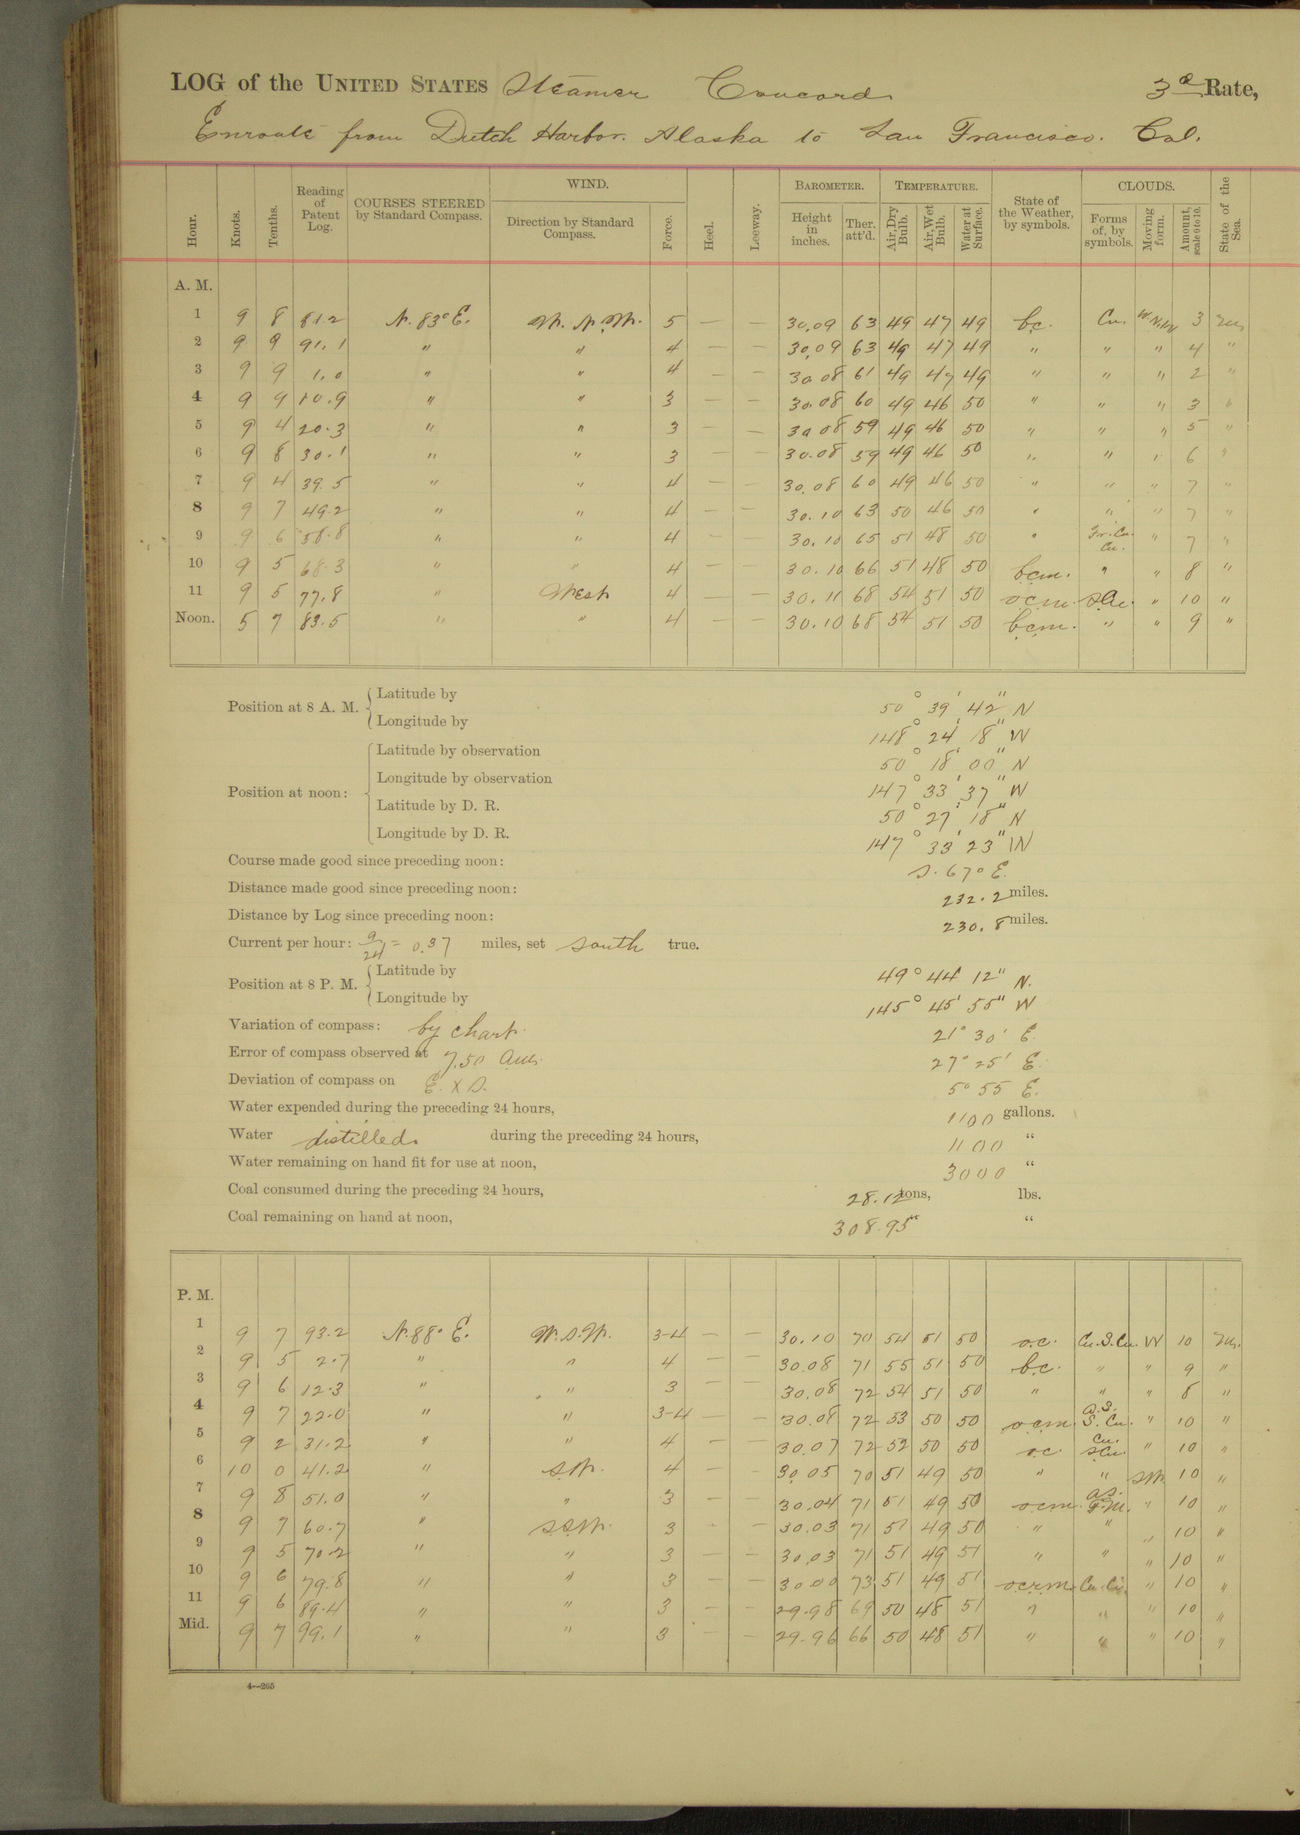 LOG of the UNITED STATES Steamer Concord 3d Rate,
Enroute from Dutch Harbor. Alaska to San Francisco. Cal.
Hour. Knots. Tenths. Reading of Patent Log. COURSES STEERED by Standard Compass. WIND. Direction by Standard Compass. Force. Heel. Leeway. BAROMETER. Height in inches. Ther. att'd. TEMPERATURE. Air, Dry Bulb. Air, Wet Bulb. Water at Surface. State of the Weather, by symbols. CLOUDS. Forms of, by symbols. Moving form. Amount, scale 0 to 10. State of the Sea.
A. M.
1 9 8 81.2 N. 83° E. W. N. W. 5 — — 30.09 63 49 47 49 bc. Cu. W.N.W 3
2 9 9 91.1 " " 4 — — 30.09 63 49 47 49 " " " 4 "
3 9 9 1.0 " " 4 — — 30.08 61 49 47 49 " " " 2 "
4 9 9 10.9 " " 3 — — 30.08 60 49 46 50 " " " 3 "
5 9 4 20.3 " " 3 — — 30.08 59 49 46 50 " " " 5 "
6 9 8 30.1 " " 3 — — 30.08 59 49 46 50 " " " 6 "
7 9 4 39.5 " " 4 — — 30.08 60 49 46 50 " " " 7 "
8 9 7 49.2 " " 4 — — 30.10 63 50 46 50 " " " 7 "
9 9 6 58.8 " " 4 — — 30.10 65 51 48 50 " Fr.Cu. Cu. " 7 "
10 9 5 68.3 " " 4 — — 30.10 66 51 48 50 bcm. " " 8 "
11 9 5 77.8 " West 4 — — 30.11 68 54 51 50 ocm. S.Cu. " 10 "
Noon. 5 7 83.5 " " 4 — — 30.10 68 54 51 50 bcm. " " 9 "
Position at 8 A. M. Latitude by 50° 39' 42" N
Longitude by 148° 24' 18" W
Position at noon: Latitude by observation 50° 18' 00" N
Longitude by observation 147° 33' 37" W
Latitude by D. R. 50° 27' 18" N
Longitude by D. R. 147° 33' 23" W
Course made good since preceding noon: S. 67° E.
Distance made good since preceding noon: 232.2 miles.
Distance by Log since preceding noon: 230.8 miles.
Current per hour: 9/24 = 0.37 miles, set south true.
Position at 8 P. M. Latitude by 49° 44' 12" N.
Longitude by 145° 45' 55" W
Variation of compass: by chart. 21° 30' E.
Error of compass observed at 7.50 am. 27° 25' E.
Deviation of compass on E. x S. 5° 55 E.
Water expended during the preceding 24 hours, 1100 gallons.
Water distilled during the preceding 24 hours, 1100 "
Water remaining on hand fit for use at noon, 3000 "
Coal consumed during the preceding 24 hours, 28.12 tons, lbs.
Coal remaining on hand at noon, 308.95 " "
P. M.
1 9 7 93.2 N. 88° E. W.S.W. 3-4 — — 30.10 70 54 51 50 oc. Cu.S.Cu. W 10
2 9 5 2.7 " " 4 — — 30.08 71 55 51 50 bc. " " 9 "
3 9 6 12.3 " " 3 — — 30.08 72 54 51 50 " " " 8 "
4 9 7 22.0 " " 3-4 — — 30.08 72 53 50 50 ocm. A.S. S.Cu. " 10 "
5 9 2 31.2 " " 4 — — 30.07 72 52 50 50 oc. Cu. S.Cu. " 10 "
6 10 0 41.2 " S.W. 4 — — 30.05 70 51 49 50 " " SW. 10 "
7 9 8 51.0 " " 3 — — 30.04 71 51 49 50 ocm. A.S. " 10 "
8 9 7 60.7 " SSW. 3 - — 30.03 71 51 49 50 " " " 10 "
9 9 5 70.2 " " 3 — — 30.03 71 51 49 51 " " " 10 "
10 9 6 79.8 " " 3 — — 30.00 73 51 49 51 ocrm. " 10 "
11 9 6 89.4 " " 3 — — 29.98 69 50 48 51 " " " 10 "
Mid. 9 7 99.1 " " 3 — — 29.96 66 50 48 51 " " " 10 "
4—265